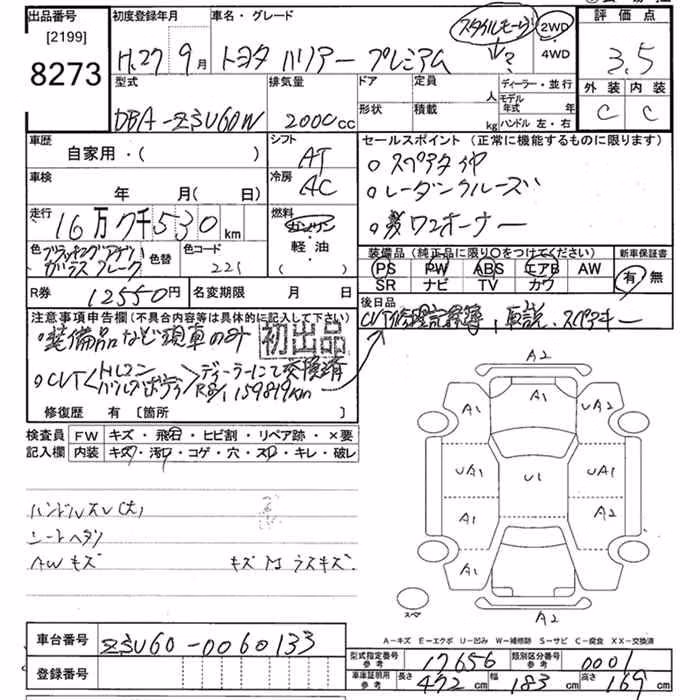 出品番号
[2199]
8273
初度登録年月
H.27 9月
車名・グレード
トヨタ ハリアー プレミアム
スタイルモーヴ
?
2WD
4WD
評価点
3.5
外装 内装
C C
型式
DBA-ZSU60W
排気量
2000cc
ドア
定員
人
ディーラー・並行
モデル年式 年
形状
積載
kg
ハンドル 左・右
車歴
自家用・( )
シフト
AT
車検
年 月( 日)
冷房
AC
走行
16万7千530km
燃料
ガソリン
軽油
( )
色
ブラッキッシュアゲハ
ガラスフレーク
色替
色コード
221
R券
12550円
名変期限 月 日
セールスポイント(正常に機能するものに限ります)
○スペアタイヤ
○レーダークルーズ
ワンオーナー
装備品(純正品に限り○をつけてください)
PS PW ABS エアB AW
SR ナビ TV カワ
新車保証書
有 無
後日品
CVT修理記録簿、取説、スペアキー
注意事項申告欄(不具合内容等は具体的に記入して下さい)
○装備品など現車のみ
初出品
○CVT<トルコン バルブボディ>ディーラーにて交換済
R8/1 159819km
修復歴 有[箇所 ]
検査員記入欄
FW キズ・飛石・ヒビ割・リペア跡・×要
内装 キズ・汚・コゲ・穴・スレ・キレ・破レ
ハンドルスレ(大)
シートヘタリ
AWキズ
キズ 凹 ラスキズ
A2
A1
A1
UA2
UA1
U1
UA1
A1
A2
A1
A2
スペア
A-キズ E-エクボ U-凹み W-補修跡 S-サビ C-腐食 XX-交換済
車台番号
ZSU60-0060133
登録番号
型式指定番号 参考
17656
類別区分番号 参考
0001
車庫証明用 参考
長さ 472 cm 幅 183 cm 高さ 169 cm